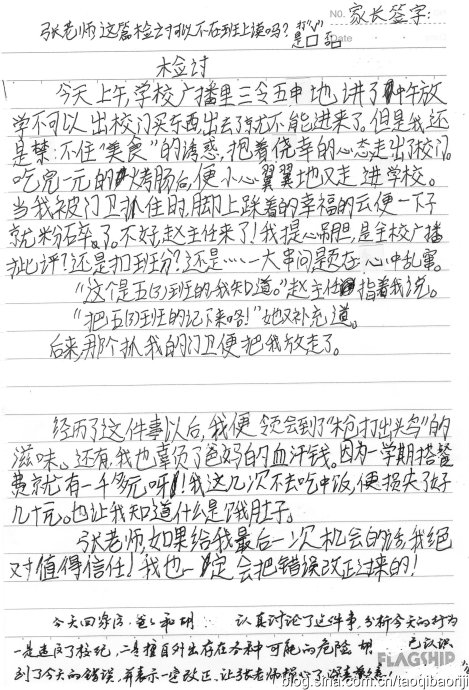 NO. 家长签字:
张老师这篇检讨可以不在班上读吗? 打"√" 是□ 否□
Date
检讨
今天上午,学校广播里三令五申地讲了中午放
学不可以出校门买东西出去了就不能进来了。但是我还
是禁不住"美食"的诱惑,抱着侥幸的心态走出了校门。
吃完一元的烤肠后,便小心翼翼地又走进学校。
当我被门卫抓住时,脚上踩着的幸福的云便一下子
就粉碎了。不好,赵主任来了!我提心吊胆,是全校广播
批评?还是扣班分?还是……一大串问题在心中乱窜。
"这个是五(3)班的,我知道。"赵主任指着我说。
"把五(3)班的记下来咯!"她又补充道。
后来,那个抓我的门卫便把我放走了。
经历了这件事以后,我便领会到了"枪打出头鸟"的
滋味。还有,我也辜负了爸妈的血汗钱。因为一学期搭餐
费就有一千多元呀!我这几次不去吃中饭,便损失了好
几十元。也让我知道什么是饿肚子。
张老师,如果给我最后一次机会的话,我绝
对值得信任!我也一定会把错误改正过来的!
今天回家后,爸爸和 认真讨论了这件事,分析今天的行为
一是违反了校纪,二是擅自外出存在各种可能的危险 已认识
到了今天的错误,并表示一定改正。让张老师操心了,
FLAGSHIP
blog.sina.com.cn/taoqibaoriji